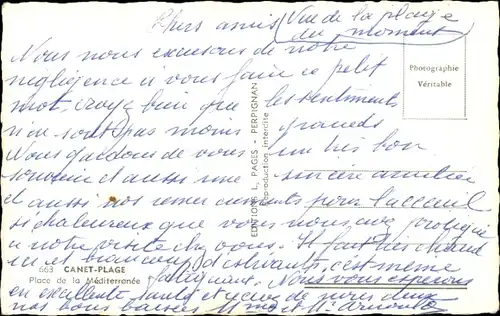 Chers amis (Vue de la plage
du moment)
Nous nous excusons de notre
négligence à vous faire ce petit
mot, croyez bien que les sentiments
n'en sont pas moins grands
Nous gardons de vous un très bon
souvenir et aussi une sincère amitié
et aussi nos remerciements pour l'accueil
si chaleureux que vous nous avez prodigué
à notre visite chez vous. Il fait très chaud
ici et beaucoup d'estivants, c'est même
fatiguant. Nous vous espérons
en excellente santé et recevez de nous deux
nos bons baisers Mme et Mr
Photographie
Véritable
EDITIONS L. PAGES - PERPIGNAN
Reproduction interdite
663 CANET-PLAGE
Place de la Méditerranée